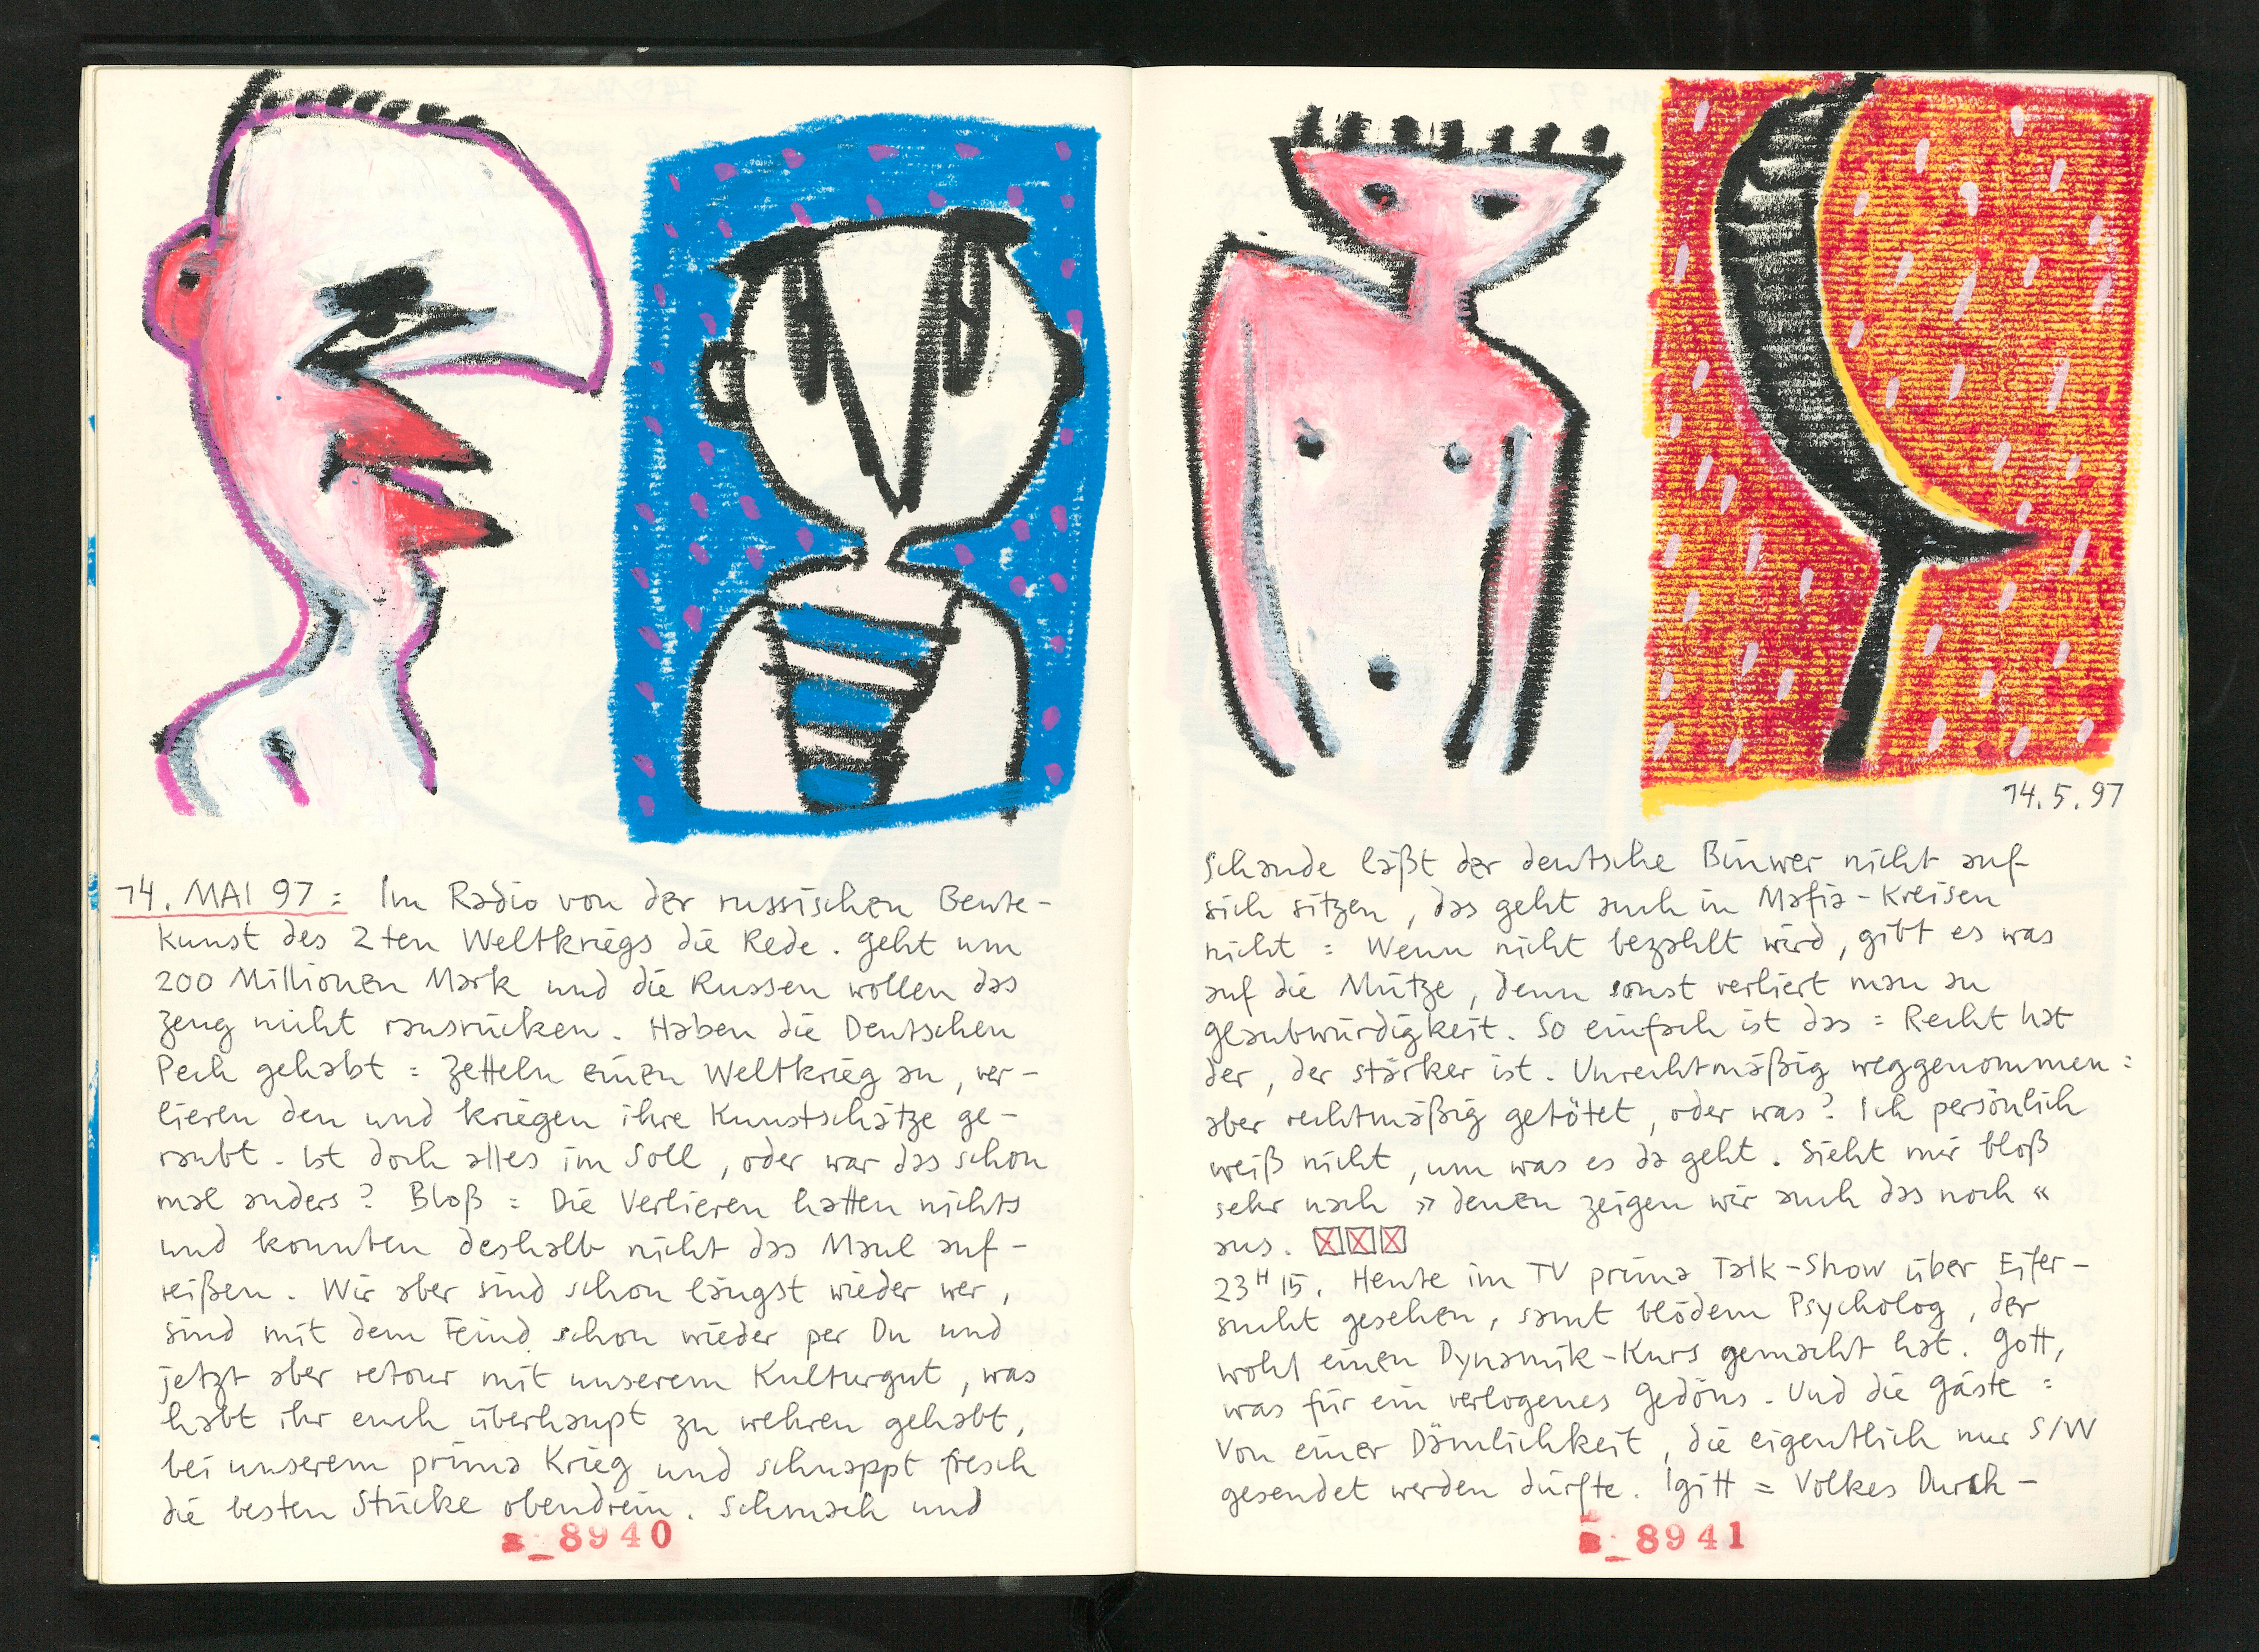 14. MAI 97: Im Radio von der russischen Beute-
kunst des 2ten Weltkriegs die Rede. Geht um
200 Millionen Mark und die Russen wollen das
Zeug nicht rausrücken. Haben die Deutschen
Pech gehabt: Zetteln einen Weltkrieg an, ver-
lieren den und kriegen ihre Kunstschätze ge-
raubt. Ist doch alles im Soll, oder war das schon
mal anders? Bloß: Die Verlieren hatten nichts
und konnten deshalb nicht das Maul auf-
reißen. Wir aber sind schon längst wieder wer,
sind mit dem Feind schon wieder per Du und
jetzt aber retour mit unserem Kulturgut, was
habt ihr euch überhaupt zu wehren gehabt,
bei unserem prima Krieg und schnappt fresch
die besten Stücke obendrein. Schmach und
a_8940
14.5.97
Schande läßt der deutsche nicht auf
sich sitzen, das geht auch in Mafia-Kreisen
nicht: Wenn nicht bezahlt wird, gibt es was
auf die Mütze, denn sonst verliert man an
Glaubwürdigkeit. So einfach ist das: Recht hat
der, der stärker ist. Unrechtmäßig weggenommen:
aber rechtmäßig getötet, oder was? Ich persönlich
weiß nicht, um was es da geht. Sieht mir bloß
sehr nach »denen zeigen wir auch das noch«
aus.
23H15. Heute im TV prima Talk-Show über Eifer-
sucht gesehen, samt blödem Psycholog, der
wohl einen Dynamik-Kurs gemacht hat. Gott,
was für ein verlogenes Gedöns. Und die Gäste:
Von einer Dämlichkeit, die eigentlich nur S/W
gesendet werden dürfte. Igitt = Volkes Durch-
a_8941